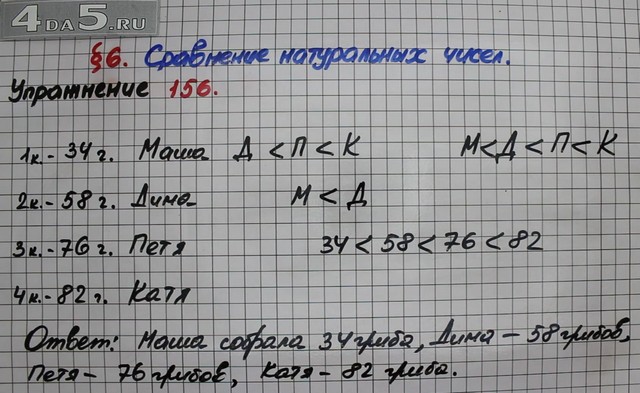 4DA5.RU
§6. Сравнение натуральных чисел.
Упражнение 156.
1к. - 34 г. Маша Д < П < К М < Д < П < К
2к. - 58 г. Дима М < Д
3к. - 76 г. Петя 34 < 58 < 76 < 82
4к. - 82 г. Катя
Ответ: Маша собрала 34 гриба, Дима – 58 грибов,
Петя – 76 грибов, Катя – 82 гриба.